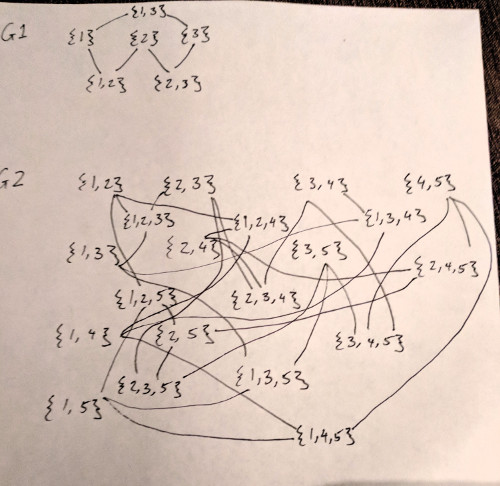 {1,3}
G1 {1} {2} {3}
{1,2} {2,3}
G2 {1,2} {2,3} {3,4} {4,5}
{1,2,3} {1,2,4} {1,3,4}
{1,3} {2,4} {3,5}
{2,4,5}
{1,2,5} {2,3,4}
{1,4} {2,5} {3,4,5}
{2,3,5} {1,3,5}
{1,5}
{1,4,5}